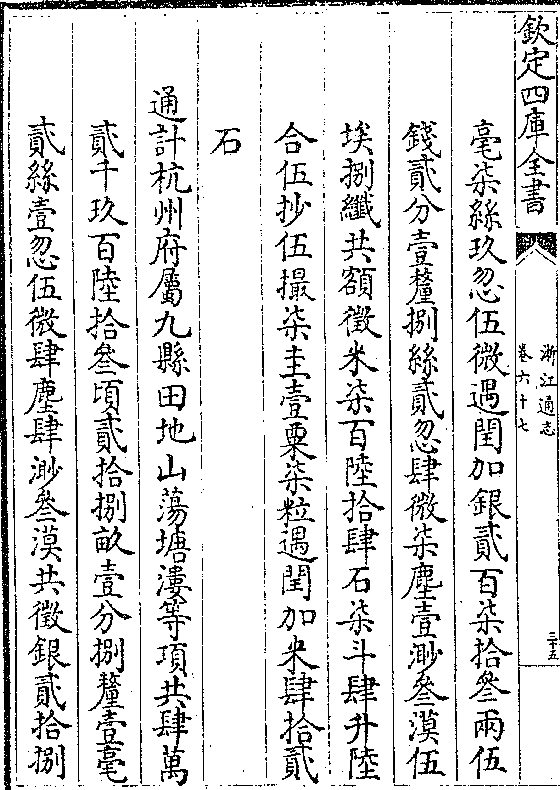 欽定四庫全書
浙江通志
卷六十七
三十五
毫柒絲玖忽伍微遇閏加銀貳百柒拾叁兩伍
錢貳分壹釐捌絲貳忽肆微柒塵壹渺叁漠伍
埃捌纎共額徵米柒百陸拾肆石柒斗肆升陸
合伍抄伍撮柒圭壹粟柒粒遇閏加米肆拾貳
石
通計杭州府屬九縣田地山蕩塘漊等項共肆萬
貳千玖百陸拾叁頃貳拾捌畝壹分捌釐壹毫
貳絲壹忽伍微肆塵肆渺叁漠共徵銀貳拾捌